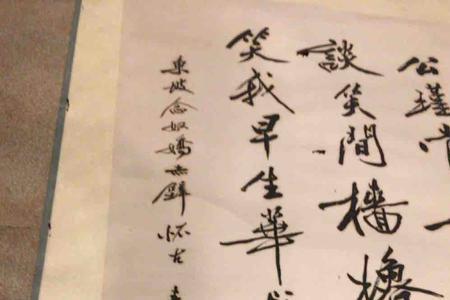 公瑾
談笑間檣櫓
笑我早生華
東坡念奴嬌赤壁懷古